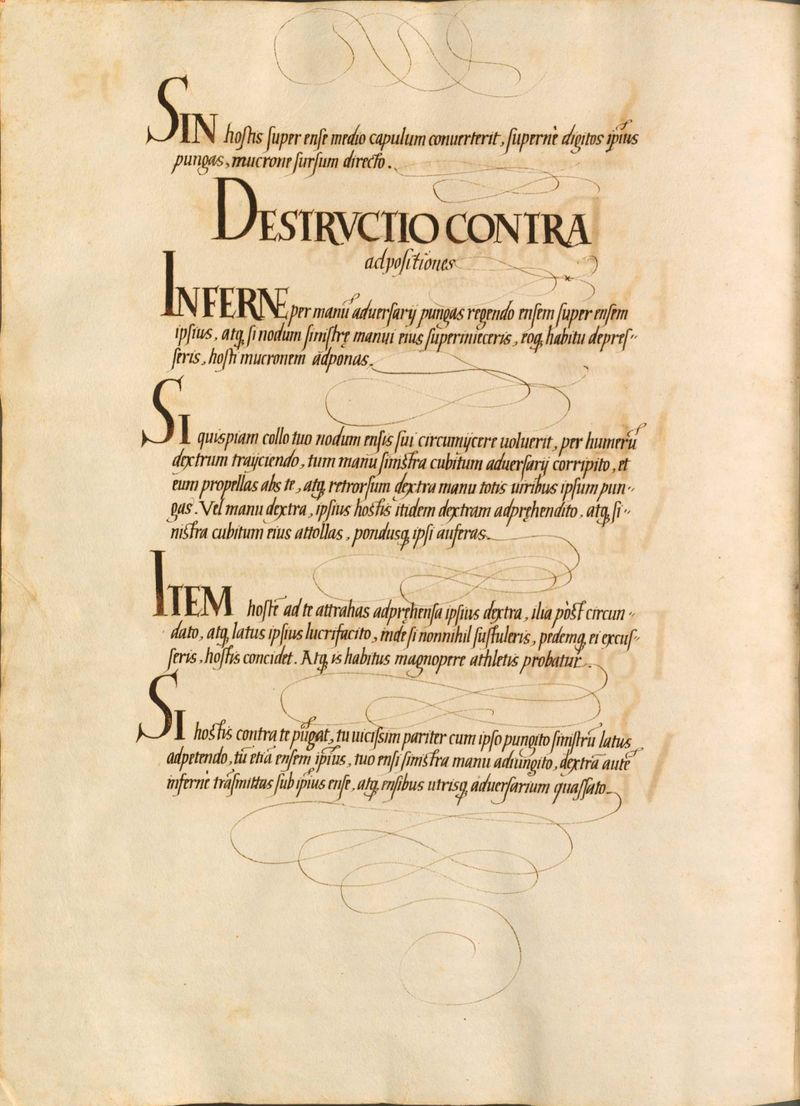 SIN hostis super ense medio capulum conuerterit, supernè digitos ip̃ius
pungas, mucrone sursum directo.
DESTRVCTIO CONTRA
adpositiones
INFERNE per manũ aduersarij pungas regendo ensem super ensem
ipsius, atq, si nodum sinistrę manui eius superinieceris, eoq, habitu depres-
seris, hosti mucronem adponas.
SI quispiam collo tuo nodum ensis sui circumijcere uoluerit, per humerũ
dextrum trayciendo, tum manu sinistra cubitum aduersarij corripito, et
eum propellas abs te, atq, retrorsum dextra manu totis uiribus ipsum pun-
gas. Vel manu dextra, ipsius hostis itidem dextram adpręhendito, atq, si-
nistra cubitum eius attollas, pondusq, ipsi auferas.
ITEM hostẽ ad te attrahas adpręhensa ipsius dextra, ilia põst circun-
dato, atq, latus ipsius lucrifacito, inde si nonnihil sustuleris, pedemq, ei excus-
seris, hostis concidet. Atq, is habitus magnopere athletis probatur.
SI hostis contra te pũgat, tu uicissim pariter cum ipso pungito sinistrũ latus
adpetendo, tũ etiã ensem ip̃ius, tuo ensi sinistra manu adiungito, dextrã autẽ
infernè trãsmittas sub ip̃ius ense, atq, ensibus utrisq, aduersarium quassato.